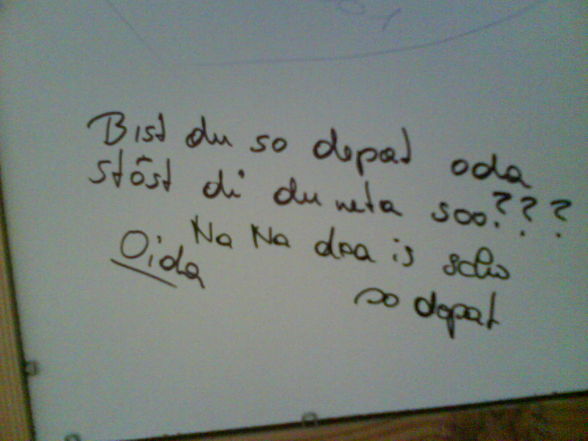 Bist du so depat oda
stöst di du neta soo???
Oida Na Na dea is scho
so depat